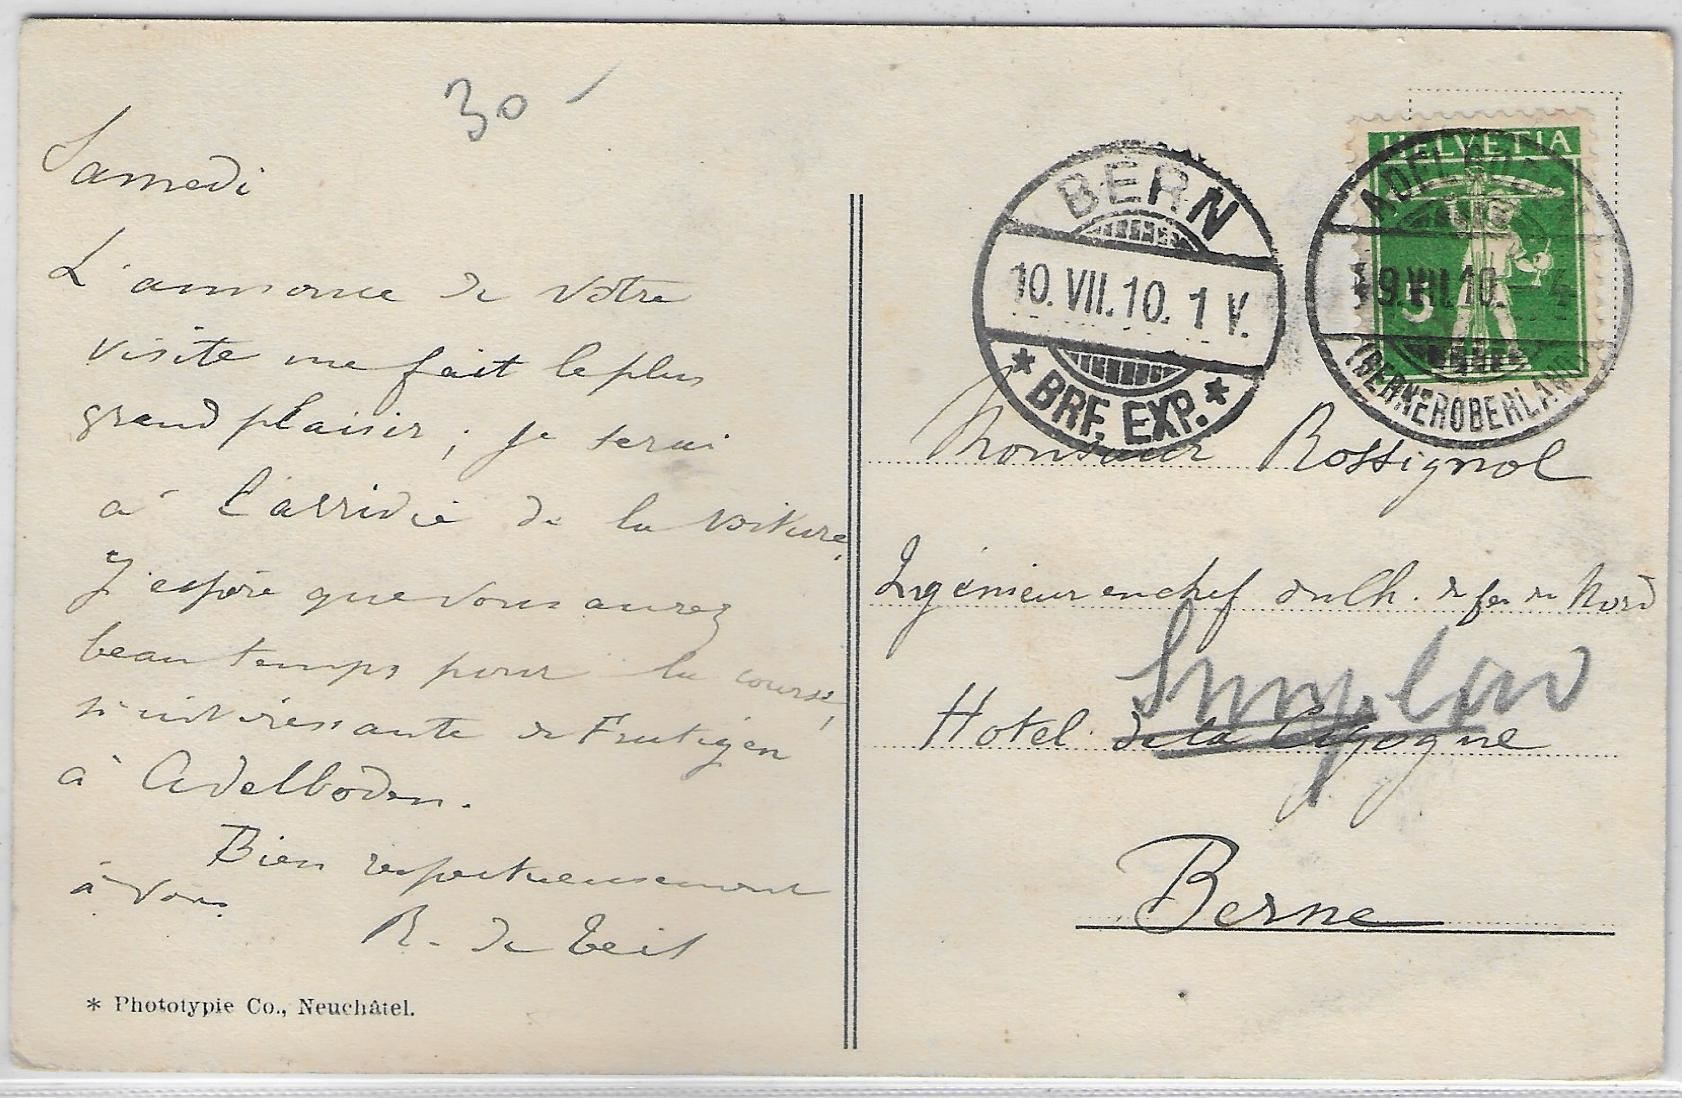 30
Samedi
L'annonce de votre
visite me fait le plus
grand plaisir ; je serai
à l'arrivée de la voiture,
J'espère que vous aurez
beau temps pour la course,
si intéressante de Frutigen
à Adelboden.
Bien respectueusement
à vous
R. de
* Phototypie Co., Neuchâtel.
BERN
10. VII. 10. 1 V.
* BRF. EXP. *
HELVETIA
5
ADELBODEN
9. VII. 10.
(BERNEROBERLAND)
Monsieur Rossignol
Ingénieur en chef du Ch. de fer du Nord
Simplon
Hotel de la Cigogne
Berne